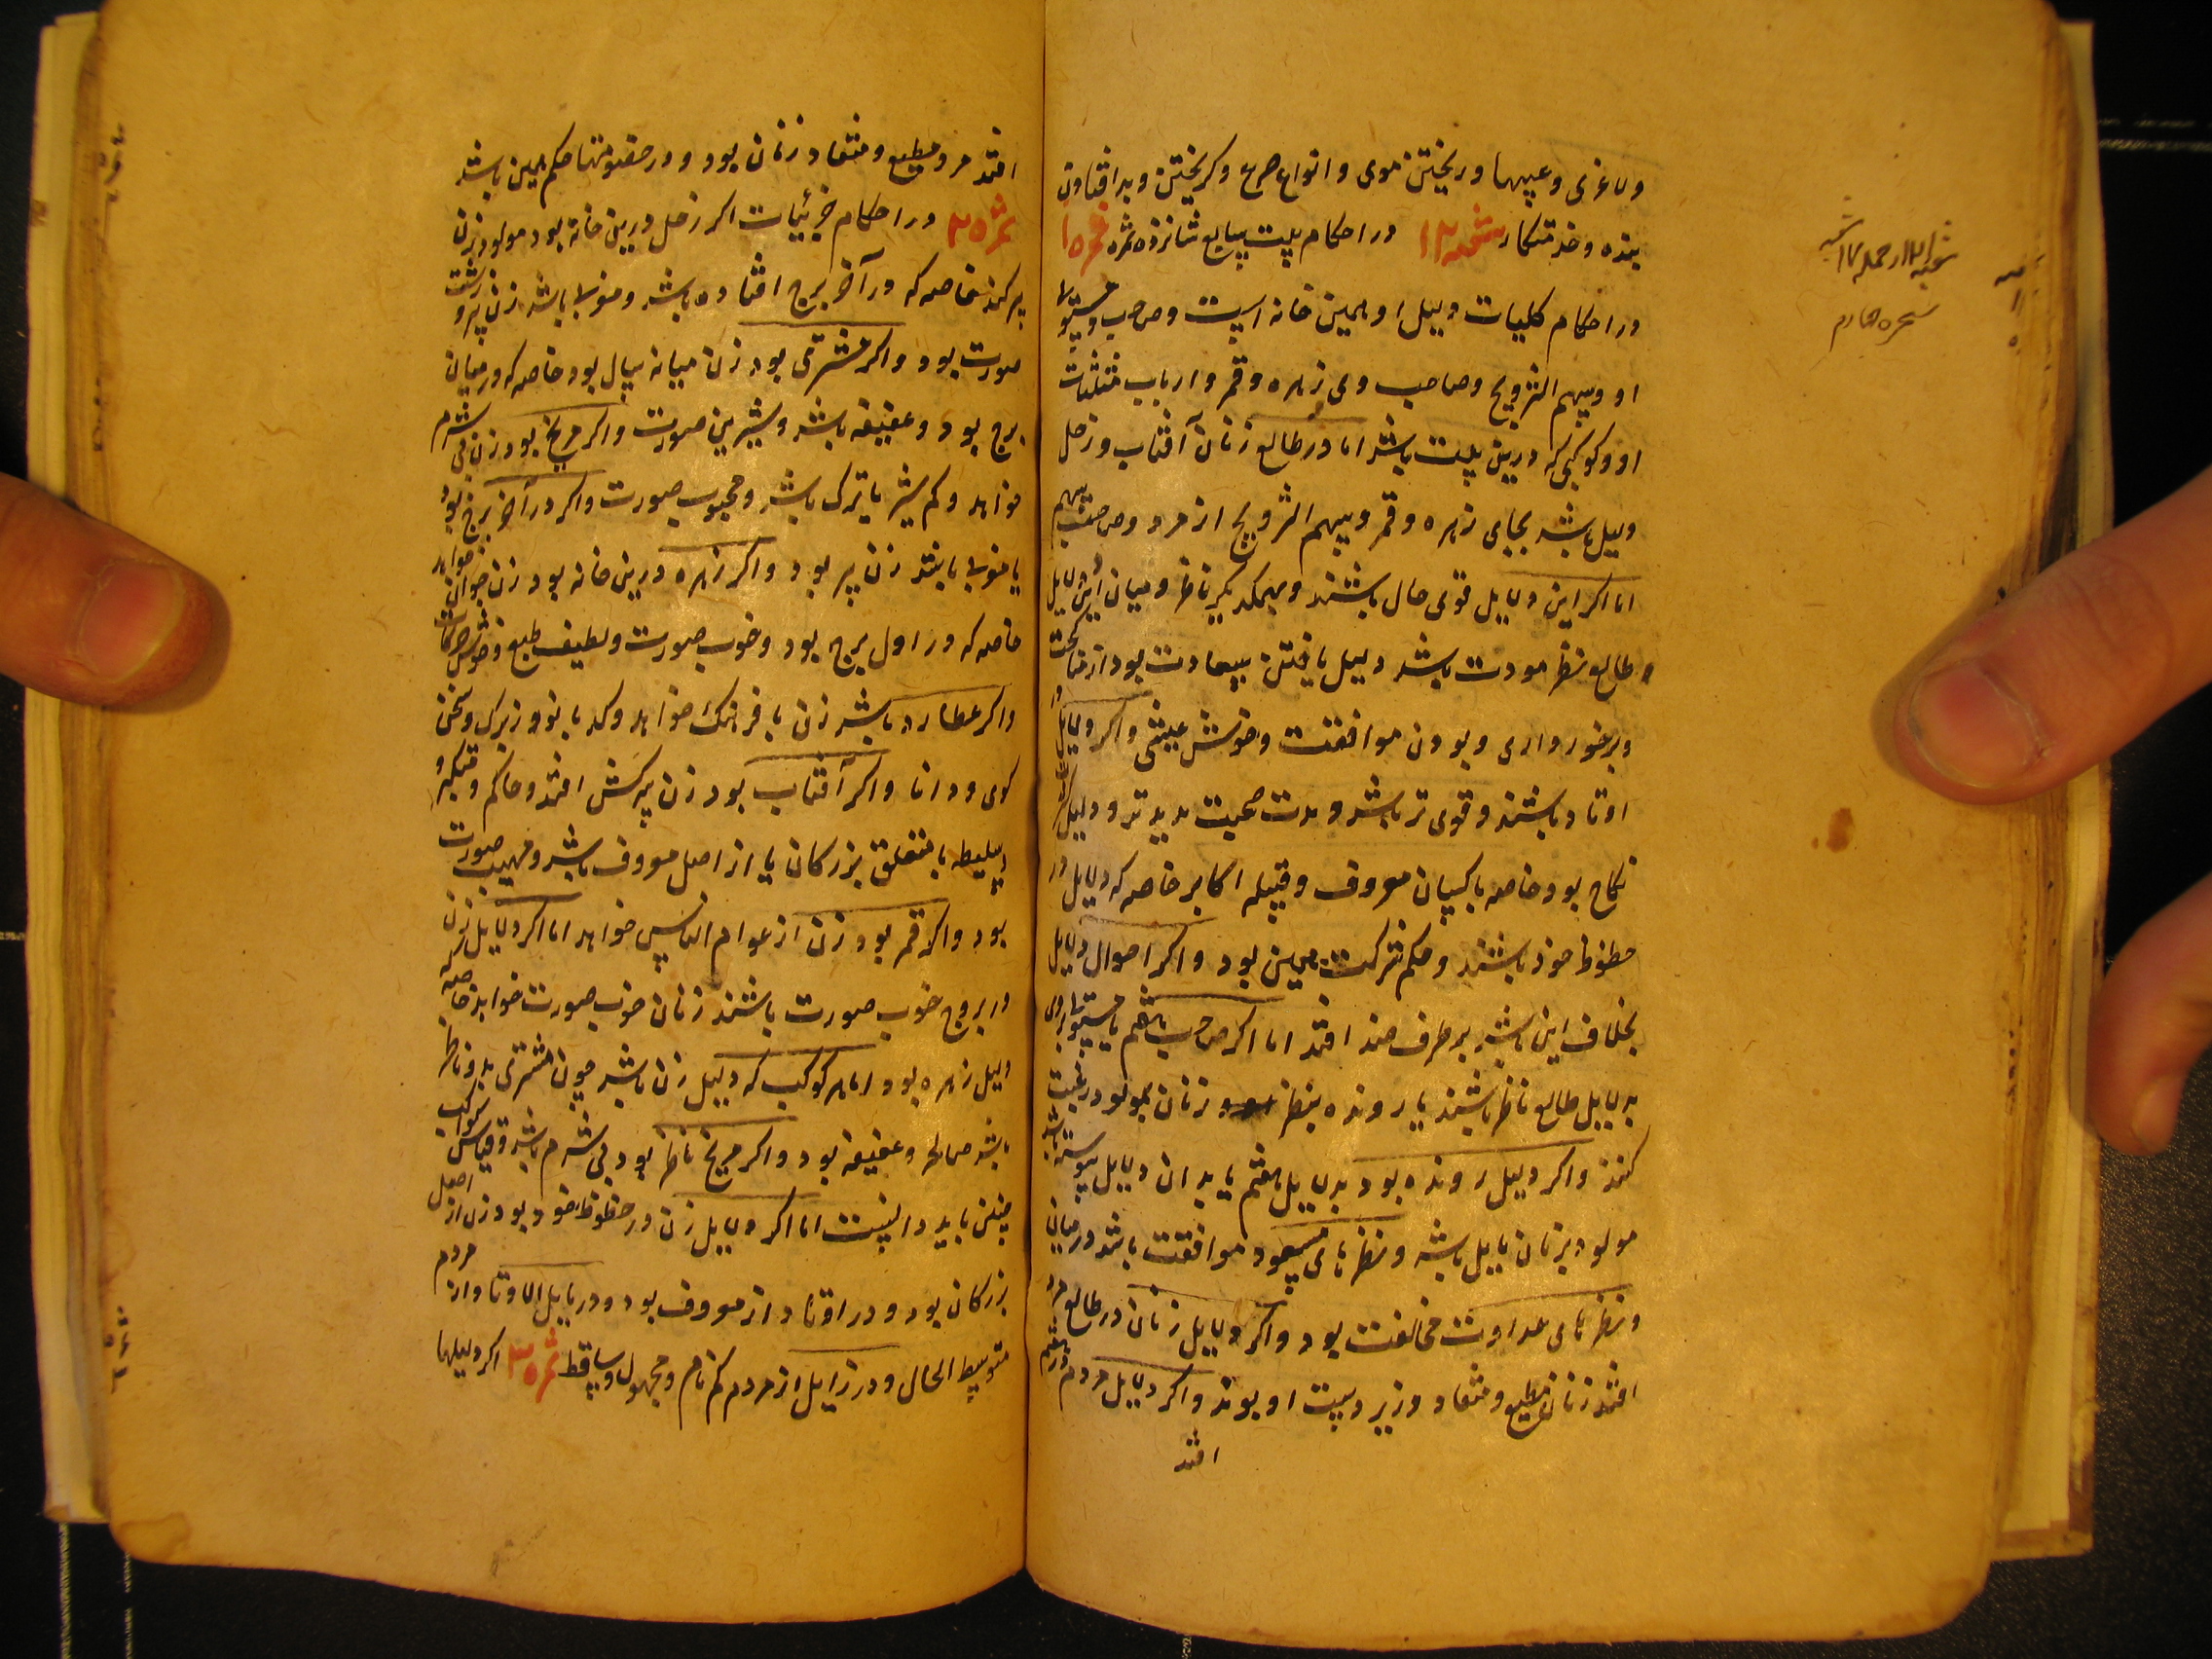 ولاغری وعیبها وریختن موی وانواع صرع وکریختن وبد افتادن
بنده وخدمتکار شجره ۱۲ در احکام بیت سابع شانزده ثمره ثمره ۱
در احکام کلیات دلیل او همین خانه است وصاحب ومستولا
او وسهم التزویج وصاحب وی زهره وقمر وارباب مثلثات
او وکوکبی که درین بیت باشد اما در طالع زنان آفتاب وزحل
دلیل باشد بجای زهره وقمر وسهم التزویج از مرد وصاحب سهم
اما اکر این دلایل قوی حال باشند وبهمدیکر ناظر ومیان این دلایل
وطالع نظر مودت باشد دلیل یافتن سعادت بود از مناکحت
وبرخورداری وبودن موافقت وخوش عیشی واکر دلایل در
اوتاد باشند وقوی تر باشد ومدت صحبت مدید تر ودلیل
نکاح بود خاصه باکسان معروف وقبیله اکابر خاصه که دلایل در
حظوظ خود باشند وحکم شرکت همین بود واکر احوال دلایل
بخلاف این باشد بر طرف ضد افتد اما اکر صاحب هفتم یا مستولی بروی
بدلایل طالع ناظر باشند یا رونده بنظر زنان بمولود رغبت
کنند واکر دلیل رونده بود بدلایل هفتم یا بدان دلایل پیوسته باشد
مولود بزنان مایل باشد ونظر های مسعود موافقت باشد در میان
ونظر های عداوت مخالفت بود واکر دلایل زنان در طالع مرد
افتد زنان مطیع ومنقاد وزیر دست او بوند واکر دلایل مردم در هفتم
افتد
شجره چهارم
افتد مرد مطیع ومنقاد زنان بود ودر خصومتها حکم همین باشد
ثمره ۲ در احکام جزئیات اکر زحل درین خانه بود مولود بزن
پیر کند خاصه که در آخر برج افتاده باشد ومنولا باشد زن پیر وزشت
صورت بود واکر مشتری بود زن میانه سال بود خاصه که در میان
برج بود وعفیفه باشد وشیرین صورت واکر مریخ بود زن بی شرم
خواهد وکم شیر یا ترک باشد ومحبوب صورت واکر در آخر برج بود
یا منولا یابند زن پیر بود واکر زهره درین خانه بود زن جوان خواهد
خاصه که در اول برج بود وخوب صورت ولطیف طبع وخوش حرکات
واکر عطارد باشد زن با فرهنک خواهد وکدبانو وزیرک وسخن
کوی ودانا واکر آفتاب بود زن سرکش افتد وحاکم ومتکبر و
سلیطه یا متعلق بزرکان یا از اصل معروف باشد ومهیب صورت
بود واکر قمر بود زن از عوام الناس خواهد اما اکر دلایل زن
در بروج خوب صورت باشند زنان خوب صورت خواهد خاصه که
دلیل زهره بود اما هر کوکب که دلیل زن باشد چون مشتری بدو ناظر
باشد صالحه وعفیفه بود واکر مریخ ناظر بود بی شرم باشد وقیاس کواکب
چنین باید دانست اما اکر دلایل زن در حظوظ خود بود زن از اصل
بزرکان بود ودر اوتاد از معروف بود ودر مایل الاوتاد از مردم
متوسط الحال ودر زایل از مردم کم نام ومجهول وساقط ثمره ۳ اکر دلیلها